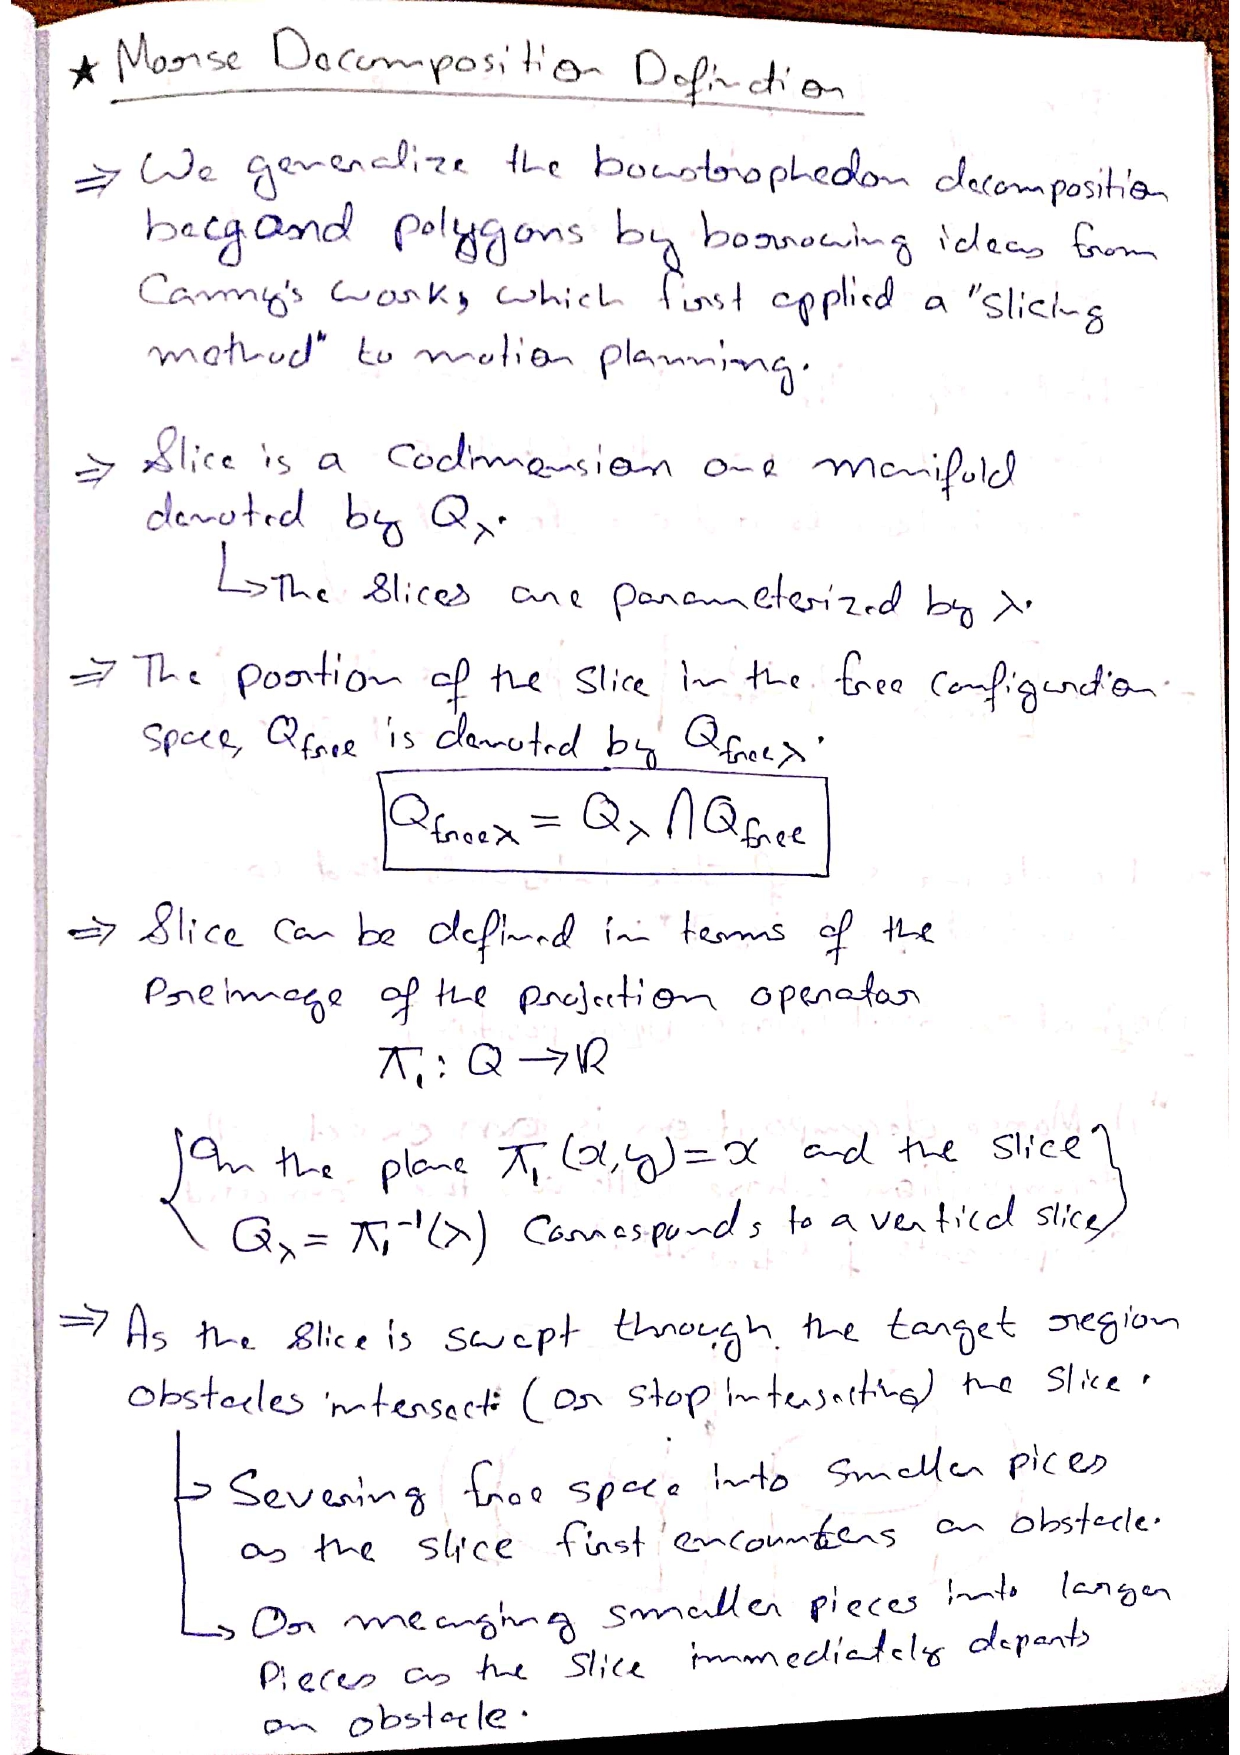 ★ Morse Decomposition Definition
⇒ We generalize the boustrophedon decomposition
beyond polygons by borrowing ideas from
Canny's works, which first applied a "slicing
method" to motion planning.
⇒ Slice is a codimension one manifold
denoted by Qλ.
↳ The slices are parameterized by λ.
⇒ The portion of the slice in the free configuration
space, Qfree is denoted by Qfreeλ.
Qfreeλ = Qλ ∩ Qfree
⇒ Slice can be defined in terms of the
Preimage of the projection operator
π₁: Q → ℝ
{In the plane π₁(x,y)=x and the slice
Qλ = π₁⁻¹(λ) corresponds to a vertical slice}
⇒ As the slice is swept through the target region
obstacles intersect (or stop intersecting) the slice.
↳ Severing free space into smaller pices
as the slice first encounters an obstacle.
↳ Or merging smaller pieces into larger
Pieces as the slice immediately departs
an obstacle.